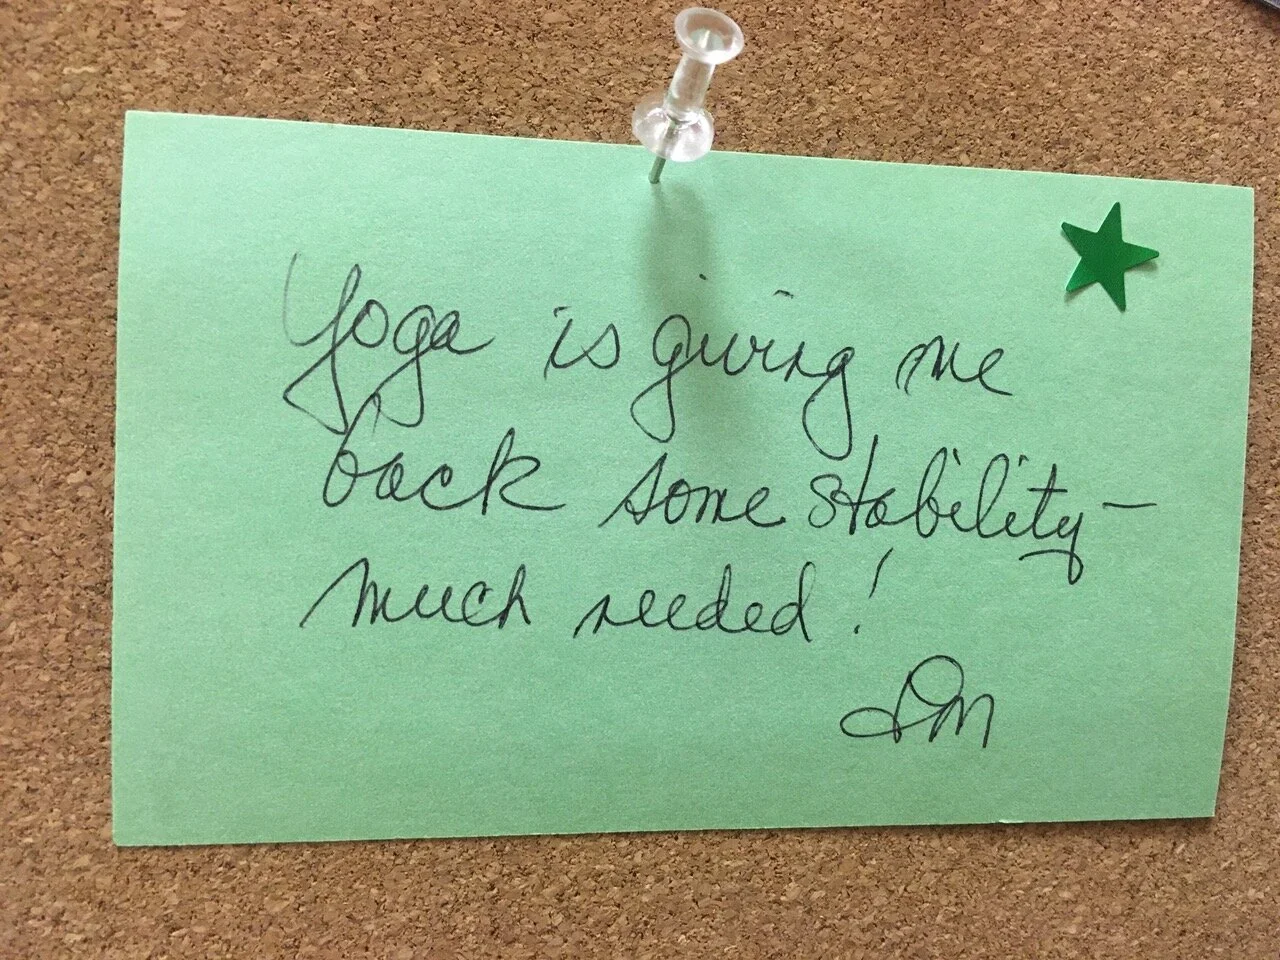 Yoga is giving me
back some stability –
much needed!
DM